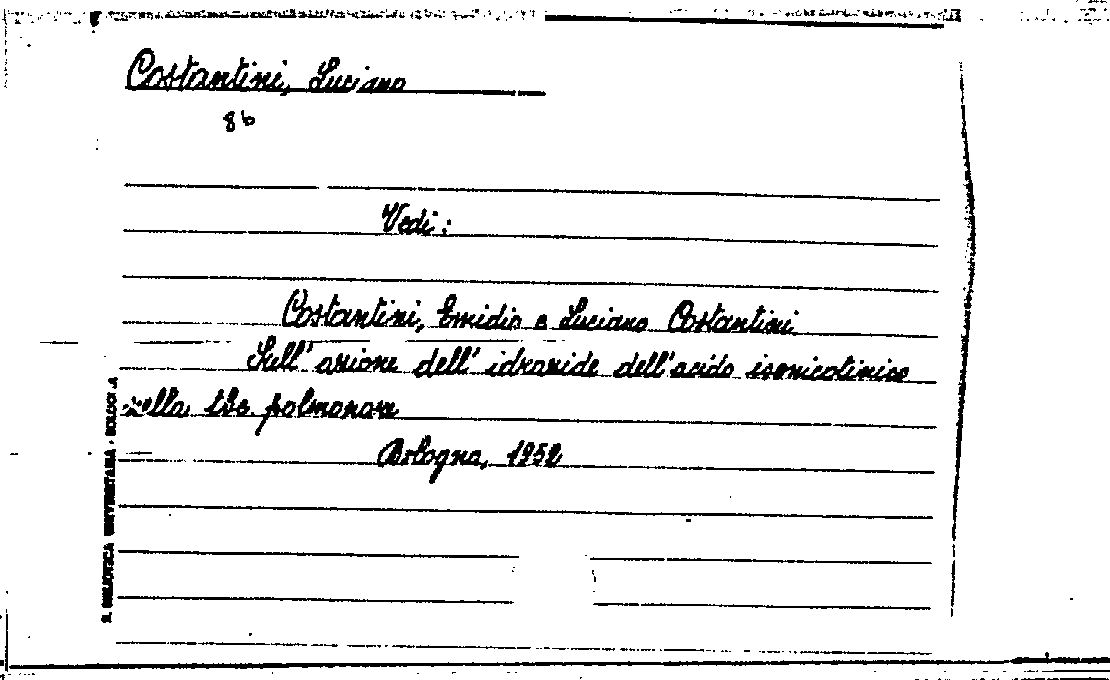 Costantini, Luciano
86
Vedi:
Costantini, Emidio e Luciano Costantini
Sull'azione dell'idrazide dell'acido isonicotinico
nella tbc. polmonare
Bologna, 1952
R. BIBLIOTECA UNIVERSITARIA - BOLOGNA